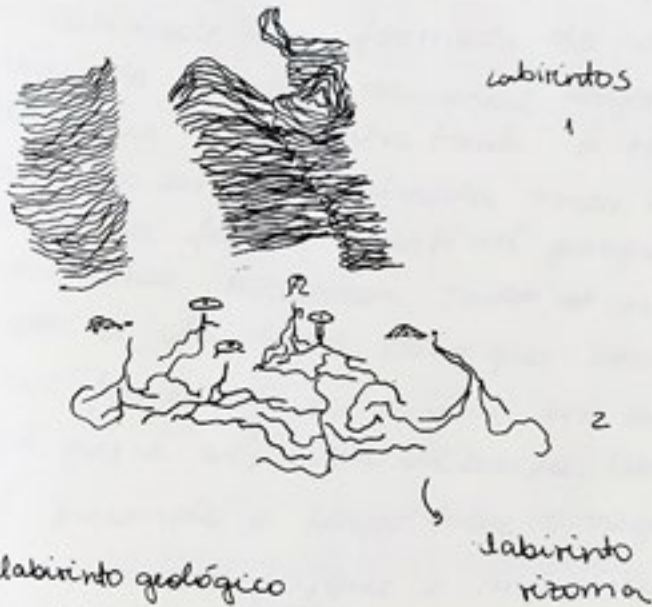 labirintos
1
2
labirinto geológico
labirinto
rizoma